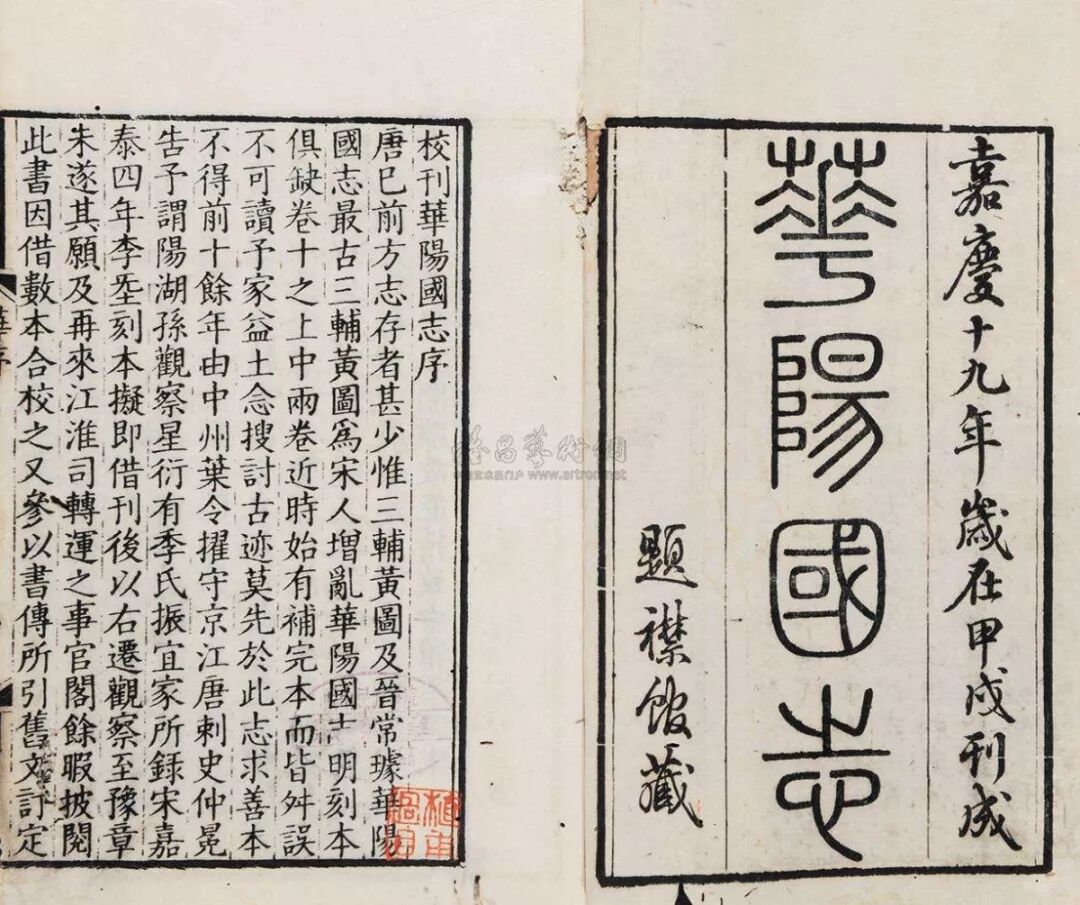 嘉慶十九年歲在甲戌刊成
華陽國志
題襟館藏
校刊華陽國志序
唐已前方志存者甚少惟三輔黃圖及晉常璩華陽
國志最古三輔黃圖爲宋人增亂華陽國志明刻本
俱缺卷十之上中兩卷近時始有補完本而皆舛誤
不可讀予家益土念搜討古迹莫先於此志求善本
不得前十餘年由中州葉令擢守京江唐刺史仲冕
告予謂陽湖孫觀察星衍有季氏振宜家所錄宋嘉
泰四年李𡌴刻本擬即借刊後以右遷觀察至豫章
未遂其願及再來江淮司轉運之事官閣餘暇披閱
此書因借數本合校之又參以書傳所引舊文訂定
www.artron.net